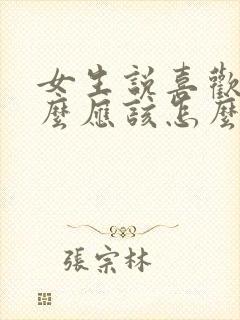 女生說喜歡
麼應該怎麼
張宗林